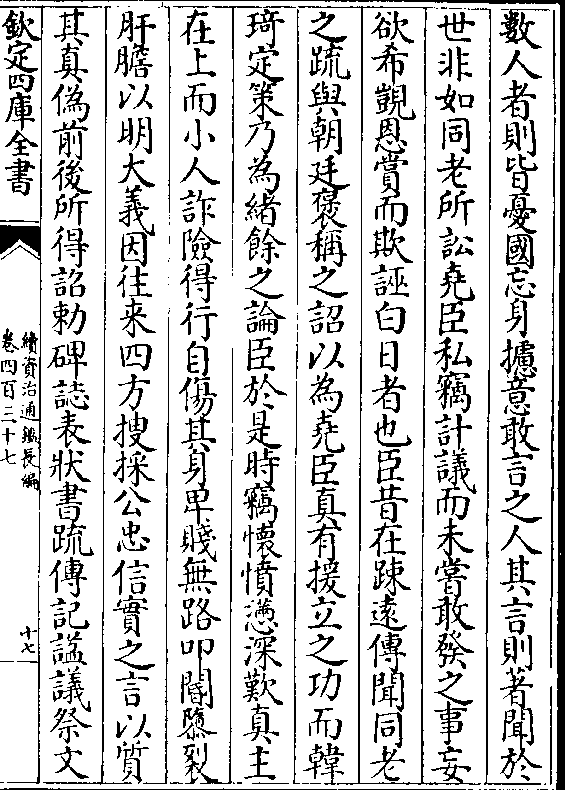 數人者則皆憂國忘身攄意敢言之人其言則著聞於
世非如同老所訟堯臣私竊計議而未嘗敢發之事妄
欲希覬恩賞而欺誣白日者也臣昔在踈逺傳聞同老
之疏與朝廷襃稱之詔以為堯臣真有援立之功而韓
琦定策乃為緒餘之論臣於是時竊懷憤懣深歎真主
在上而小人詐險得行自傷其身卑賤無路叩閽隳裂
肝膽以明大義因往来四方搜採公忠信實之言以質
其真偽前後所得詔勅碑誌表狀書疏傳記諡議祭文
欽定四庫全書
續資治通鑑長編
卷四百三十七
十七